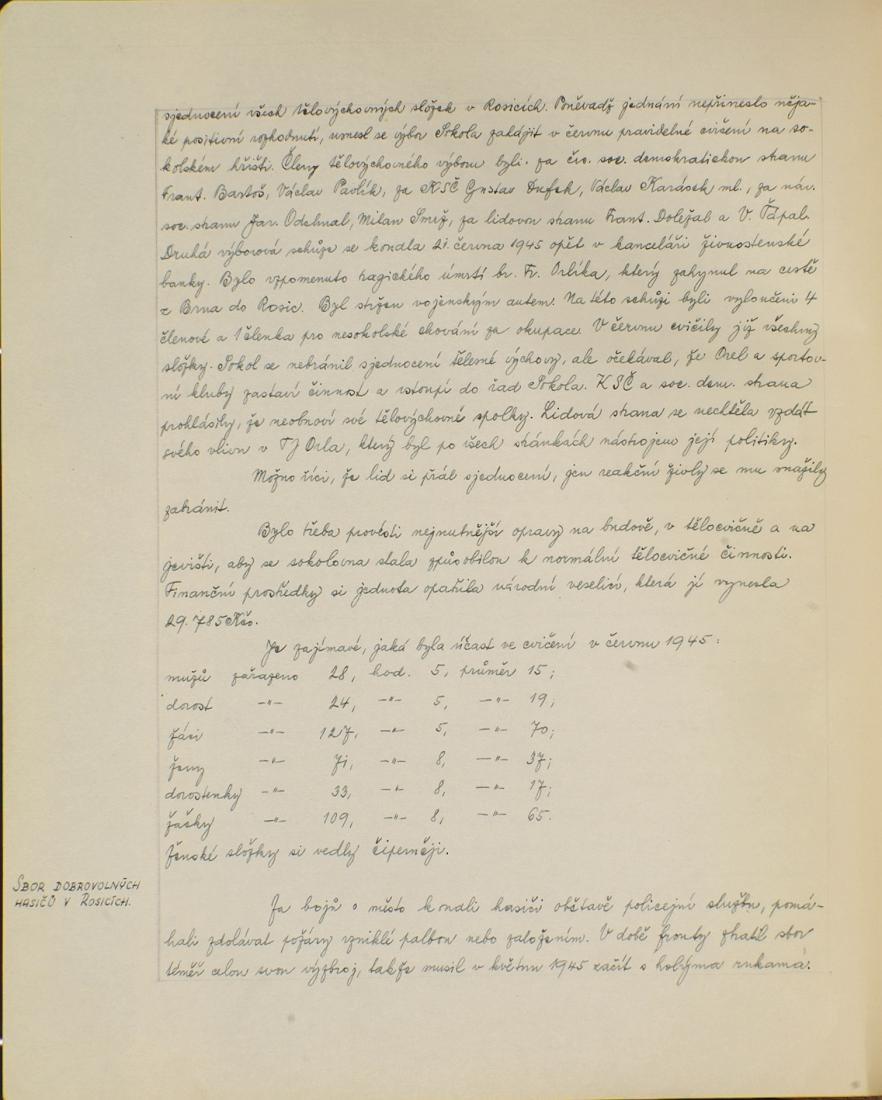 sjednocení všech tělovýchovných složek v Rosicích. Poněvadž jednání nepřineslo něja-
ké positivní rozhodnutí, usnesl se výbor Sokola zahájit v červnu pravidelné cvičení na so-
kolském hřišti. Členy tělovýchovného výboru byli: za čsl. soc. demokratickou stranu
Frant. Bartoš, Václav Pavlík, za KSČ Gustav Dufek, Václav Karásek ml., za nár.
soc. stranu Jar. Odehnal, Milan Smíž, za lidovou stranu Frant. Doležal a V. Ťápal.
Druhá výborová schůze se konala 21. června 1945 opět v kanceláři živnostenské
banky. Bylo vzpomenuto tragického úmrtí br. Fr. Orlíka, který zahynul na cestě
z Brna do Rosic. Byl stržen vojenským autem. Na této schůzi byli vyloučeni 4
členové a 1 členka pro nesokolské chování za okupace. V červnu cvičily již všechny
složky. Sokol se nebránil sjednocení tělesné výchovy, ale očekával, že Orel a sportov-
ní kluby zastaví činnost a vstoupí do řad Sokola. KSČ a soc. dem. strana
prohlásily, že neobnoví své tělovýchovné spolky. Lidová strana se nechtěla vzdát
svého vlivu v TJ Orla, který byl po všech stránkách nástrojem její politiky.
Možno říci, že lid si přál sjednocení, jen reakční živly se mu snažily
zabránit.
Bylo třeba provésti nejnutnější opravy na budově, v tělocvičně a na
jevišti, aby se sokolovna stala způsobilou k normální tělocvičné činnosti.
Finanční prostředky si jednota opatřila národní veselicí, která jí vynesla
29.785 Kčs.
Je zajímavé, jaká byla účast ve cvičení v červnu 1945:
mužů zařazeno 28, hod. 5, průměr 15;
dorost -"- 24, -"- 5, -"- 19;
žáci -"- 127, -"- 5, -"- 70;
ženy -"- 71, -"- 8, -"- 37;
dorostenky -"- 33, -"- 8, -"- 17;
žačky -"- 109, -"- 8, -"- 65.
Ženské složky si vedly čiperněji.
SBOR DOBROVOLNÝCH
HASIČŮ V ROSICÍCH.
Za bojů o město konali hasiči obětavě policejní službu, pomá-
hali zdolávat požáry vzniklé palbou nebo založením. V době fronty ztratil sbor
téměř celou svou výzbroj, takže musil v květnu 1945 začít s holýma rukama.